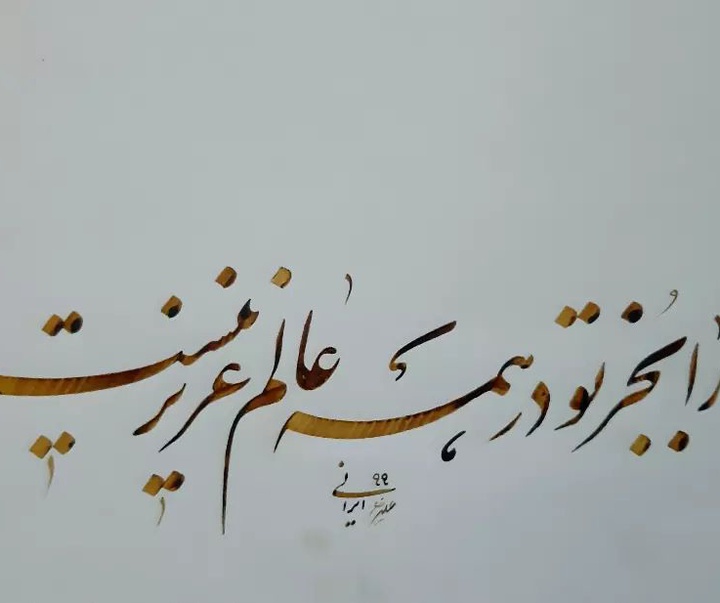 را بجز تو در همه عالم عزیز نیست
۹۹
علیرضا ایرانی